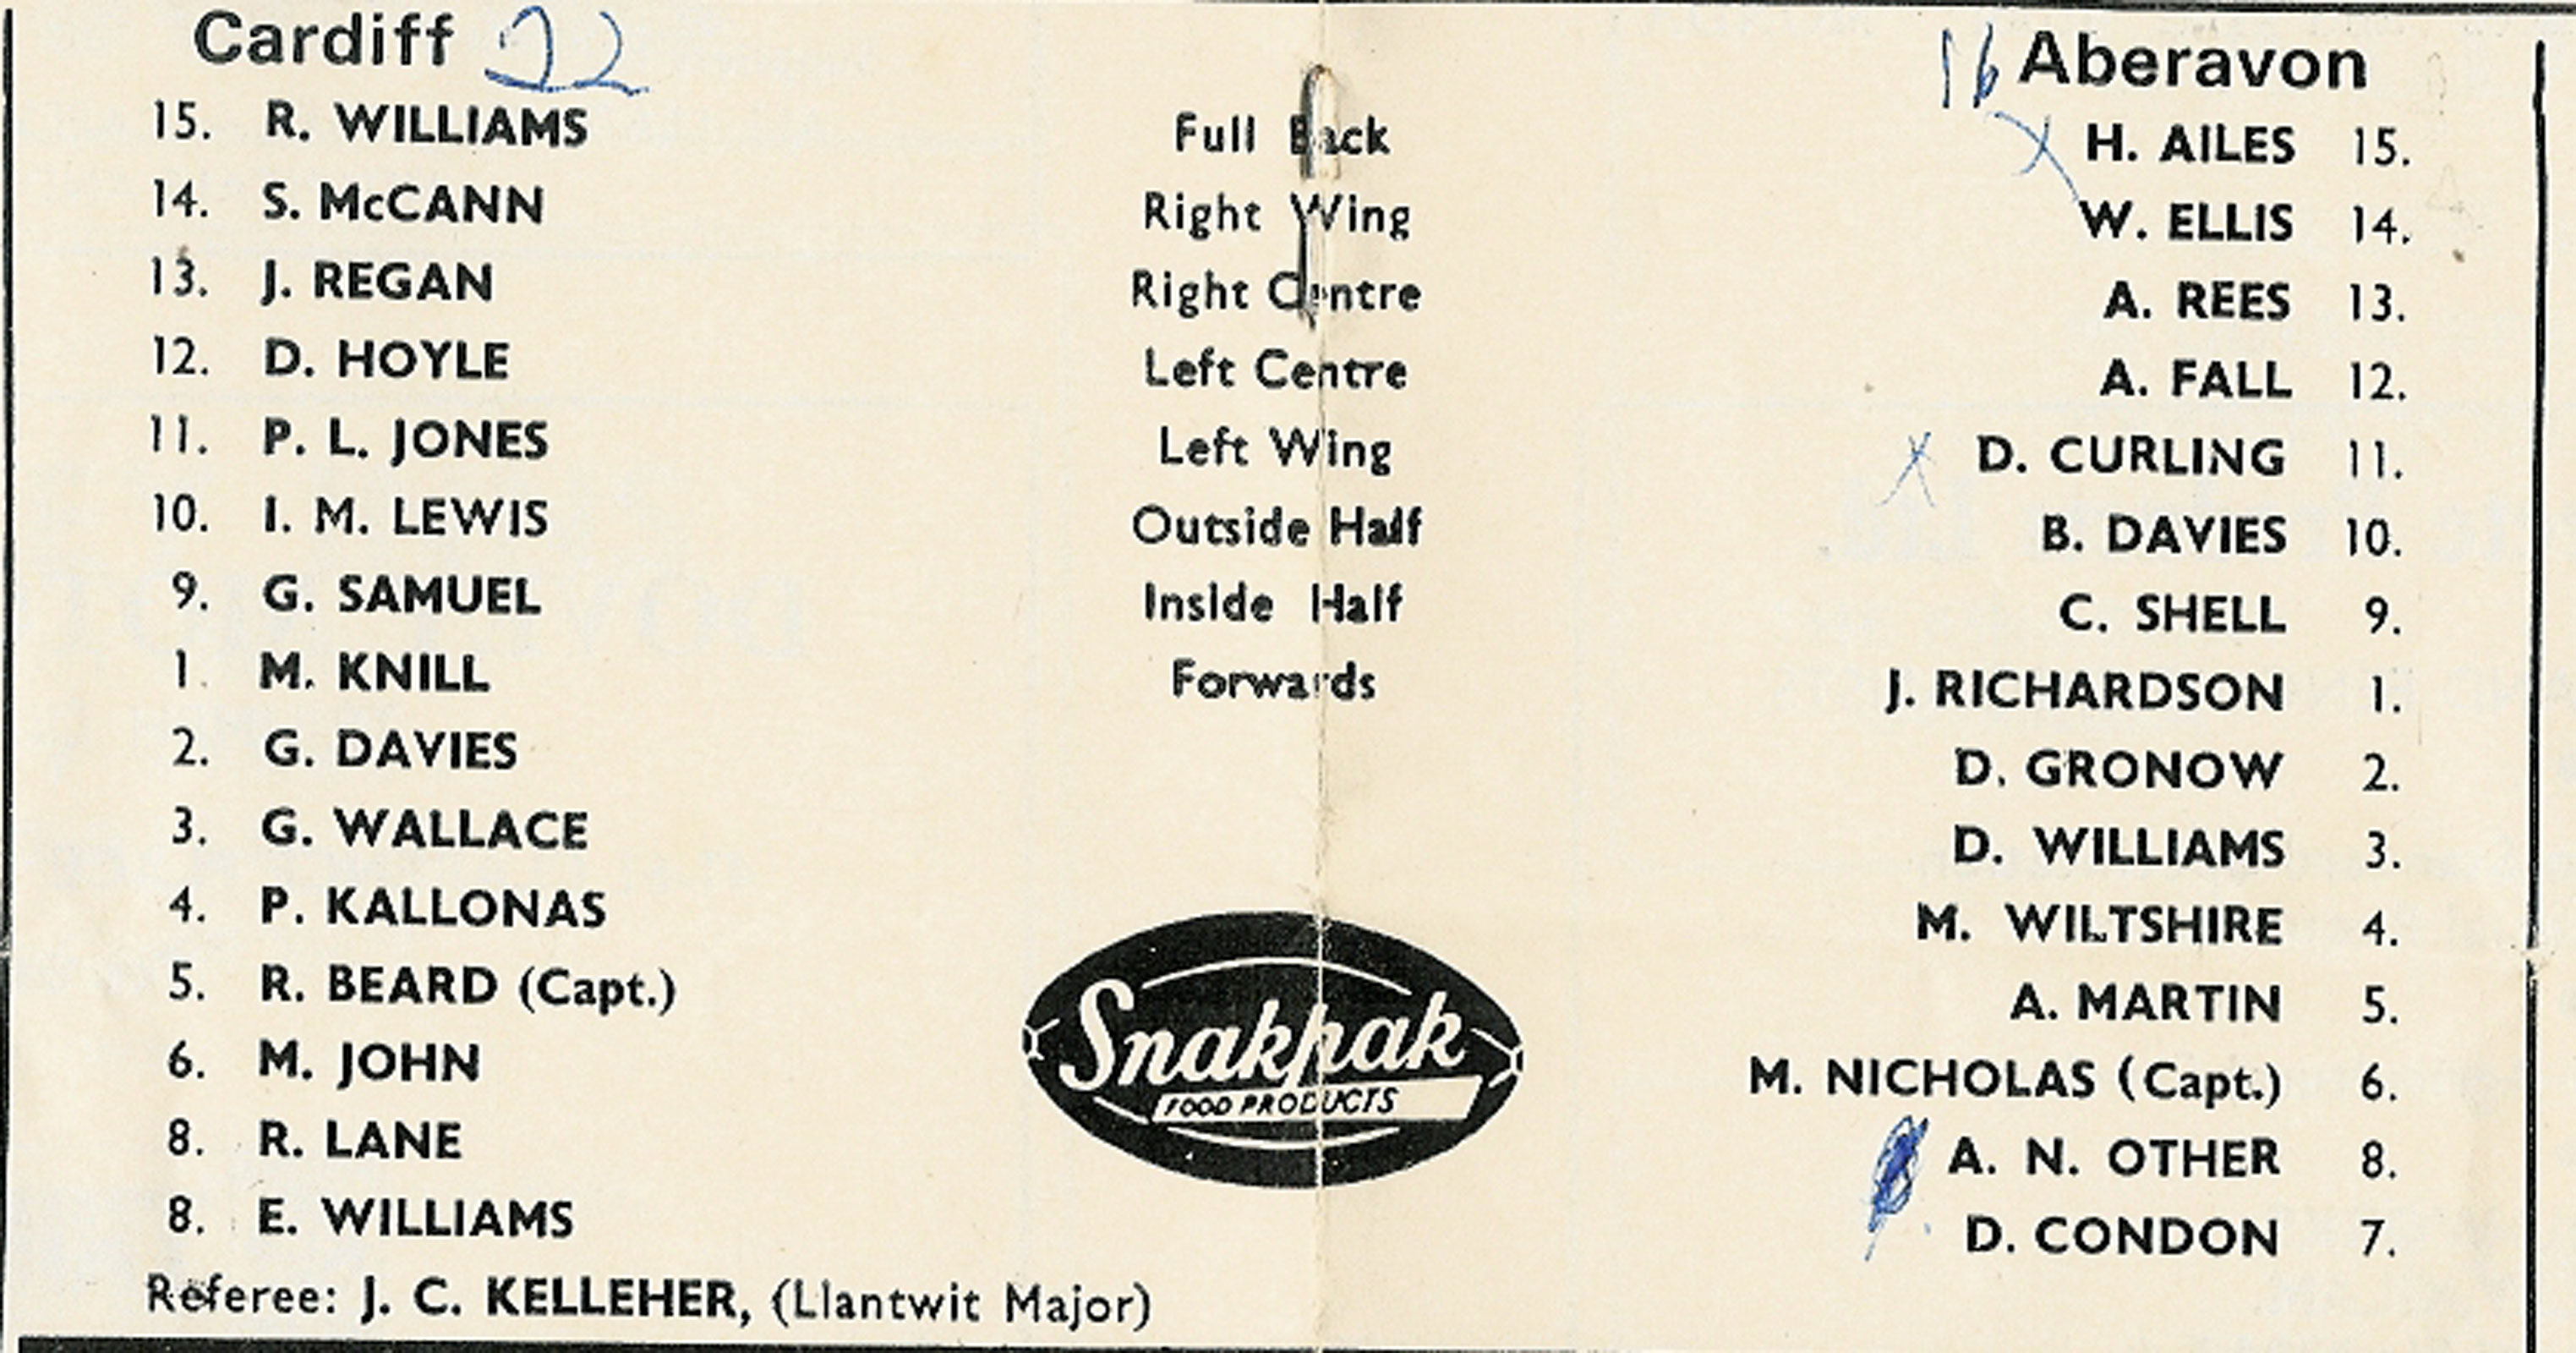 Cardiff 22 16 Aberavon
15. R. WILLIAMS Full Back H. AILES 15.
14. S. McCANN Right Wing W. ELLIS 14.
13. J. REGAN Right Centre A. REES 13.
12. D. HOYLE Left Centre A. FALL 12.
11. P. L. JONES Left Wing X D. CURLING 11.
10. I. M. LEWIS Outside Half B. DAVIES 10.
9. G. SAMUEL Inside Half C. SHELL 9.
1. M. KNILL Forwards J. RICHARDSON 1.
2. G. DAVIES D. GRONOW 2.
3. G. WALLACE D. WILLIAMS 3.
4. P. KALLONAS M. WILTSHIRE 4.
5. R. BEARD (Capt.) A. MARTIN 5.
6. M. JOHN M. NICHOLAS (Capt.) 6.
8. R. LANE A. N. OTHER 8.
8. E. WILLIAMS D. CONDON 7.
Snakpak
FOOD PRODUCTS
Referee: J. C. KELLEHER, (Llantwit Major)